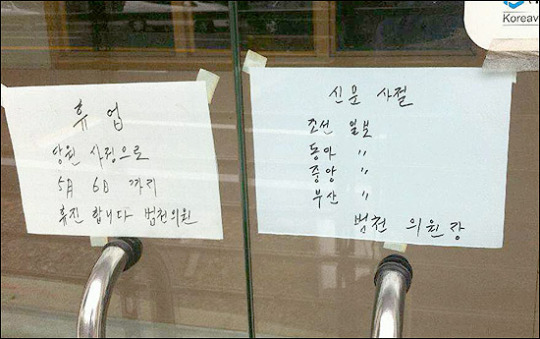 휴 업
당원 사정으로
5月 6日 까지
휴진 합니다 범천의원
신문 사절
조선 일보
동아 〃
중앙 〃
부산 〃
범천 의원장
Koreav